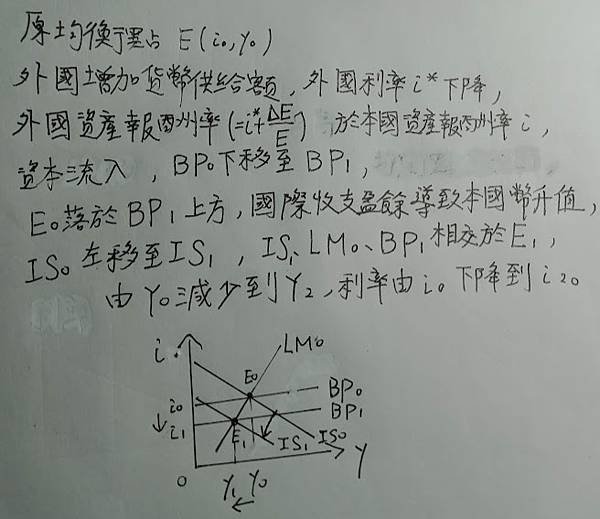 原均衡點 E(i₀,y₀)
外國增加貨幣供給額，外國利率 i* 下降，
外國資產報酬率(=i*+ΔE/E) 於本國資產報酬率 i，
資本流入，BP₀下移至 BP₁，
E₀落於BP₁上方，國際收支盈餘導致本國幣升值，
IS₀左移至IS₁，IS₁、LM₀、BP₁相交於E₁，
由Y₀減少到Y₂，利率由i₀下降到i₂。
i
LM₀
E₀
BP₀
i₀
BP₁
i₁
E₁
IS₁
IS₀
Y
0
Y₁
Y₀